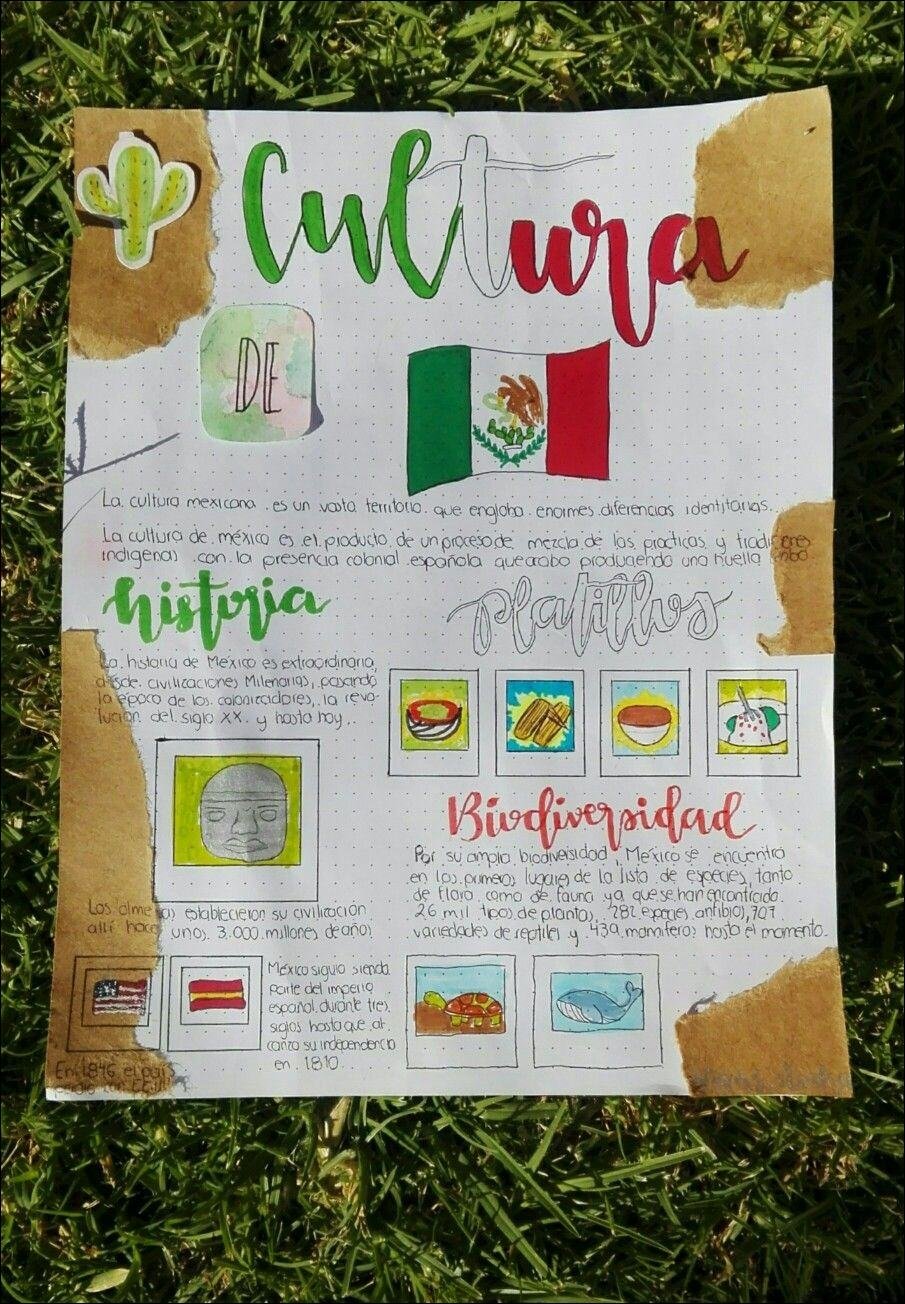 Cultura
DE
La cultura mexicana es un vasto territorio que engloba enormes diferencias identitarias.
La cultura de méxico es el producto de un proceso de mezcla de las practicas y tradiciones
indígenas con la presencia colonial española que acabo produciendo una huella
historia
La historia de México es extraordinaria,
desde civilizaciones Milenarias, pasando
la época de los colonizadores, la revo-
lución del siglo XX y hasta hoy.
Los olmecas establecieron su civilización
allí hace unos 3.000 millones de años
México siguio siendo
parte del imperio
español durante tres
siglos hasta que al
canzo su independencia
en 1810
En 1846 el país
Platillos
Biodiversidad
Por su amplia biodiversidad, México se encuentra
en los primeros lugares de la lista de especies, tanto
de flora como de fauna ya que se han encontrado
26 mil tipos de plantas, 282 especies anfibios, 707
variedades de reptiles y 439 mamíferos hasta el momento.